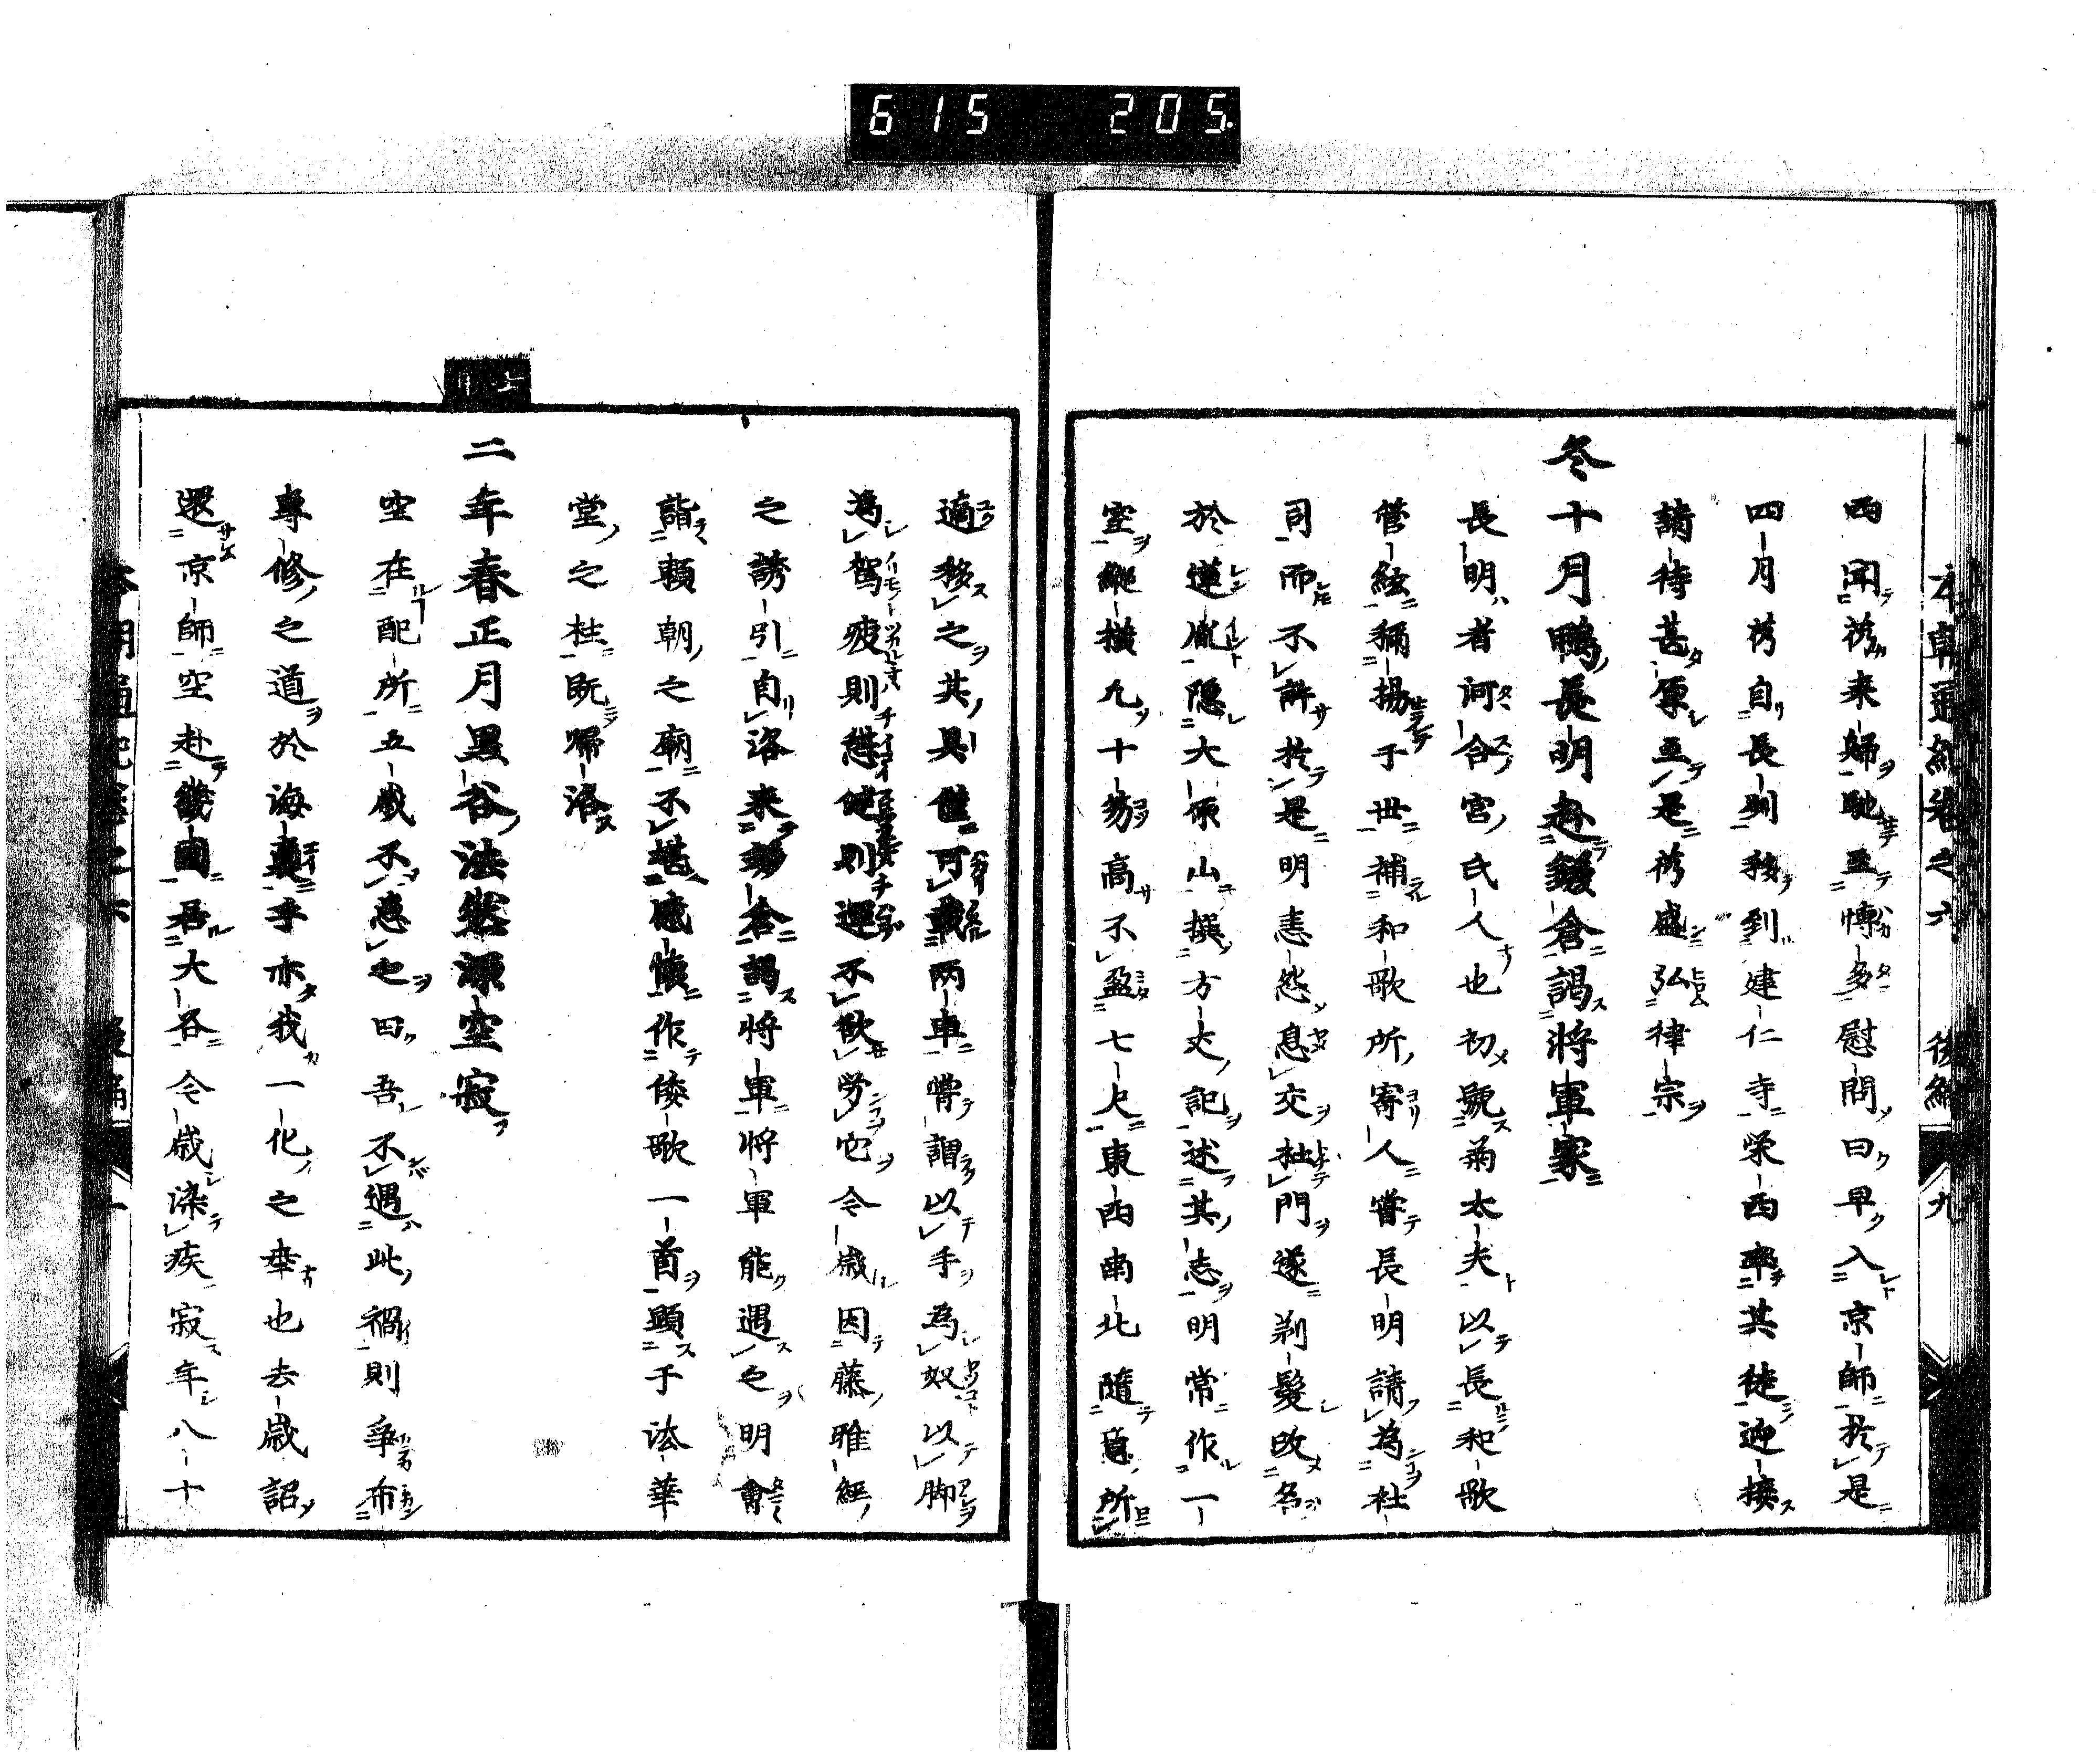 615 205
本朝通紀卷之六 後編 九
西聞芿來歸馳至慱多慰問曰早入京師於是
四月芿自長州移到建仁寺栄西率其徒迎接
請待甚厚至是芿盛弘律宗
冬十月鴨長明赴鎌倉謁將軍家
長明者河合宮氏人也初號菊太夫以長和歌
管絃稱揚于世補和歌所寄人嘗長明請為社
司而不許於是明恚怨息交杜門遂剃髮改名
於蓮胤隠大原山撰方丈記述其志明常作一
室縱横九十笏高不盈七尺東西南北隨意所
適移之其具僅可載兩車嘗謂以手為奴以脚
為駕疲則憇健則運不歓労它令歳因藤雅經
之誘引自洛來鎌倉謁將軍將軍能遇之明會
詣頼朝之廟不堪感懐作倭歌一首顕于法華
堂之柱既帰洛
二年春正月黒谷法然源空寂
空在配所五歳不恚之曰吾不遇此禍則爭布
專修之道於海裏乎亦我一化之幸也去歳詔
還京師空赴畿國居大谷今歳染疾寂年八十